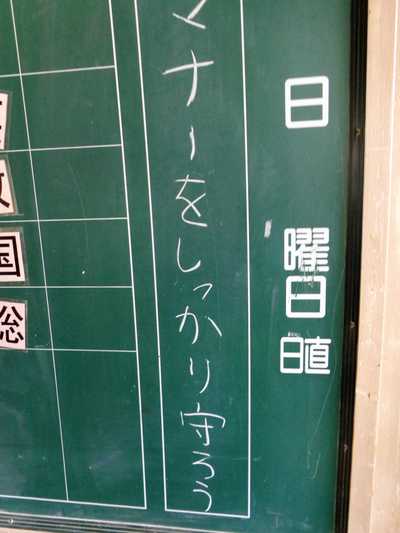 日
曜日
日直
マナーをしっかり守ろう
国
総